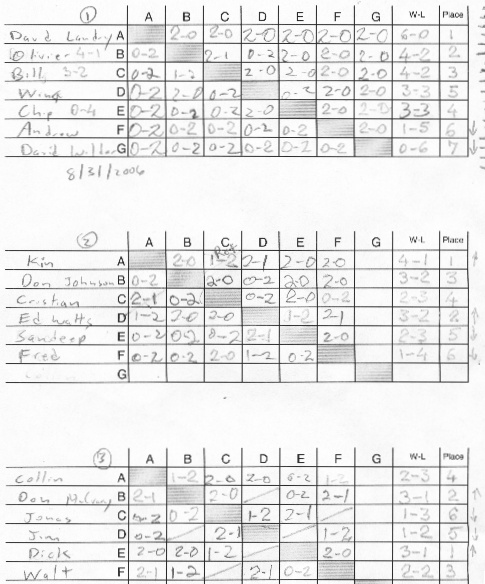 ①
A B C D E F G W-L Place
David Landry A 2-0 2-0 2-0 2-0 2-0 2-0 6-0 1
Olivier 4-1 B 0-2 2-1 0-2 2-0 2-0 2-0 4-2 2
Bill 3-2 C 0-2 1-2 2-0 2-0 2-0 2-0 4-2 3
Wing D 0-2 2-0 0-2 0-2 2-0 2-0 3-3 5
Chip 0-4 E 0-2 0-2 0-2 2-0 2-0 2-0 3-3 4
Andrew F 0-2 0-2 0-2 0-2 0-2 2-0 1-5 6 ↓
David G 0-2 0-2 0-2 0-2 0-2 0-2 0-6 7 ↓
8/31/2006
②
A B C D E F G W-L Place
Kin A 2-0 1-2 2-1 2-0 2-0 4-1 1 ↑
Don Johnson B 0-2 2-0 0-2 2-0 2-0 3-2 3
Cristian C 2-1 0-2 0-2 2-0 0-2 2-3 4
Ed Watts D 1-2 2-0 2-0 1-2 2-1 3-2 2 ↑
Sandeep E 0-2 0-2 0-2 2-1 2-0 2-3 5 ↓
Fred F 0-2 0-2 2-0 1-2 0-2 1-4 6 ↓
G
③
A B C D E F G W-L Place
Collin A 1-2 2-0 2-0 0-2 1-2 2-3 4
Don B 2-1 2-0 0-2 2-1 3-1 2 ↑
Jonas C 0-2 0-2 1-2 2-1 1-3 6 ↓
Jim D 0-2 2-1 1-2 1-2 5 ↓
Dick E 2-0 2-0 1-2 2-0 3-1 1 ↑
Walt F 2-1 1-2 2-1 0-2 2-2 3